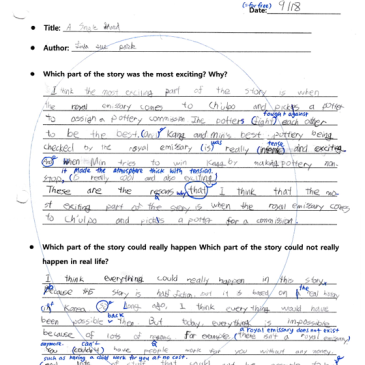 (1-for free)
Date: 9/18
• Title: A Single Shard
• Author: Linda sue park
• Which part of the story was the most exciting? Why?
I think the most exciting part of the story is when
the royal emissary comes to Ch'ulpo and picks a potter
to assign a pottery commission. The potters (fight) each other
fought against
to be the best. Kang and min's best pottery being
checked by the royal emissary (is) really (intense) and exciting.
was tense
When Min tries to win Kang by making pottery non
it made the atmosphere thick with tension.
stop, is really cool and also exciting.
These are the reasons why (that) I think that the mo-
st exciting part of the story is when the royal emissary comes
to Ch'ulpo and picks a potter for a commission.
• Which part of the story could really happen Which part of the story could not really
happen in real life?
I think everything could really happen in this story
because this story is half fiction but it is based on the real history
of Korea. Long ago, I think everything would have
been possible back then. But today, everything is impossible
a royal emissary does not exist
because of lots of reasons for example, (there isn't a royal emissary)
anymore. can't
You (couldn't) have people work for you without any money.
such as having a child work for you at no cost.